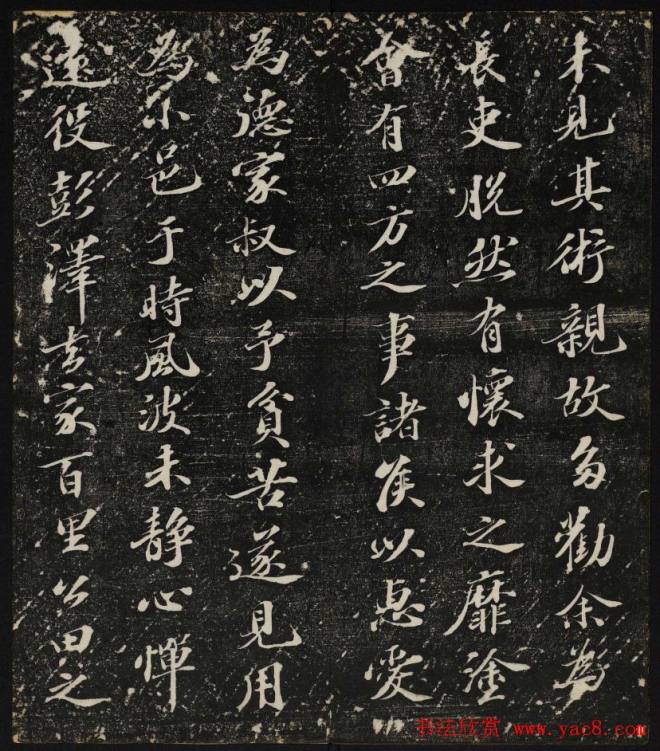 未見其術親故多勸余為
長吏脫然有懷求之靡塗
會有四方之事諸侯以惠愛
為德家叔以予貧苦遂見用
為小邑于時風波未静心憚
遠役彭澤去家百里公田之
书法欣赏 www.yac8.com